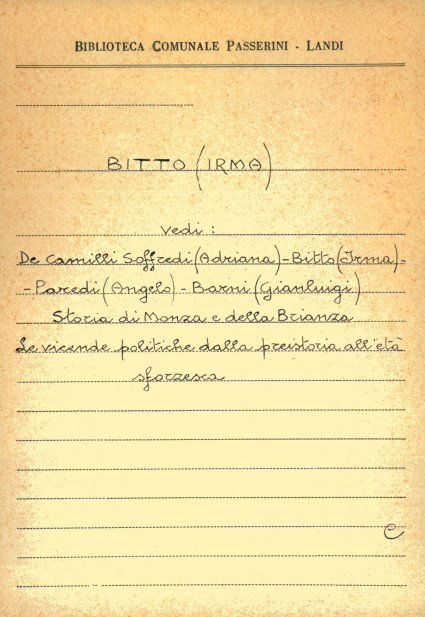 BIBLIOTECA COMUNALE PASSERINI - LANDI
BITTO (IRMA)
vedi :
De Camilli Soffredi (Adriana) - Bitto (Irma) -
- Paredi (Angelo) - Barni (Gianluigi)
Storia di Monza e della Brianza
Le vicende politiche dalla preistoria all'età
sforzesca
e